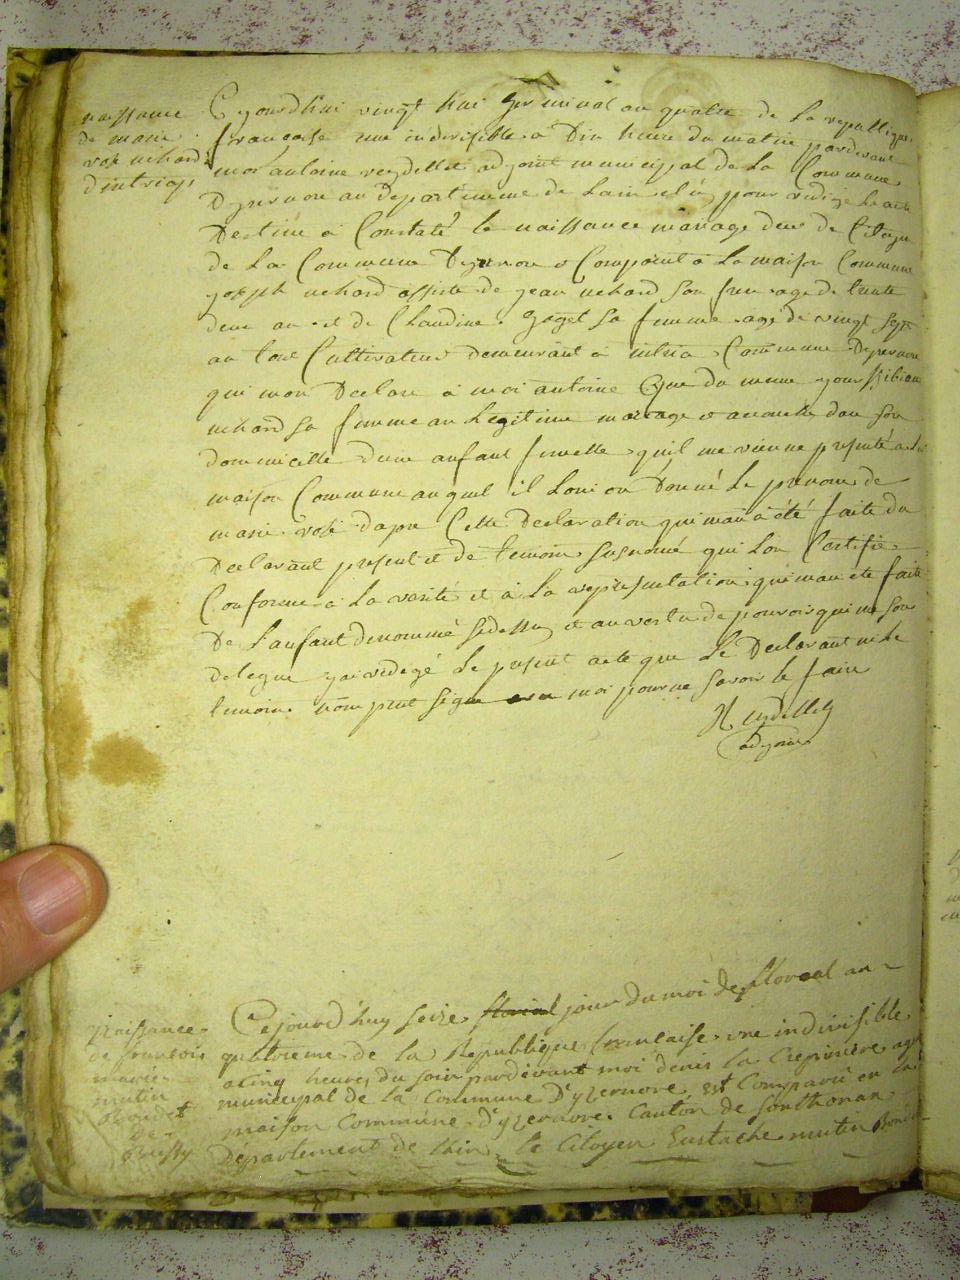 naissance
de marie
rose nehard
d'intriaz
Cejourdhui vingt hui germinal an quatre de la republique
francaise une indivisible a Dix heure du matin pardevant
moi antoine reydellet adjoint municipal de la Commune
Dyzernore au Departement de Lain elu pour redige Lacte
Destiné a Constaté la naissance mariage dece de Citoyen
de La Commune Dyzernore Comparut a La maison Commune
joseph nehard assiste de jean nehard son frere age de trente
deux an et de Claudine goget sa femme age de vingt sept
an tout Cultivateur demeurant a intria Commune Dyzernore
qui mon Declare a moi antoine Que du meme jour
nehard sa femme an Legitime mariage acouché dan son
dommicille dune anfant femelle quil me vienne presenté a la
maison Commune auquel il Loui on Donné Le prenom de
marie rose dapre Cette Declaration qui man a été faite du
Declarant present et de temoin susnomé qui Lon Certifié
Conforme a La verité et a La representation qui man eté faite
De Lanfant denommé sidessu et au vertu de pouvoir qui me son
delegue jai redegé Le present acte que Le Declarant ni Le
temoin nom peut signe avec moi pour ne savoir le faire
Reydellet
adjoint
Naissance
de francois
marie
mutin
Bondet
De
Bussy
Cejourd'huy seize jour Du moi de floreal an
quatrieme de la Republique francaise une indivisible
acinq heures du soir pardevant moi denis la Crepiniere agent
municipal de la Commune D'yzernore est Comparu en la
maison Commune D'yzernore Canton de Sonthonax
Departement de lain le Citoyen Eustache mutin Bondet